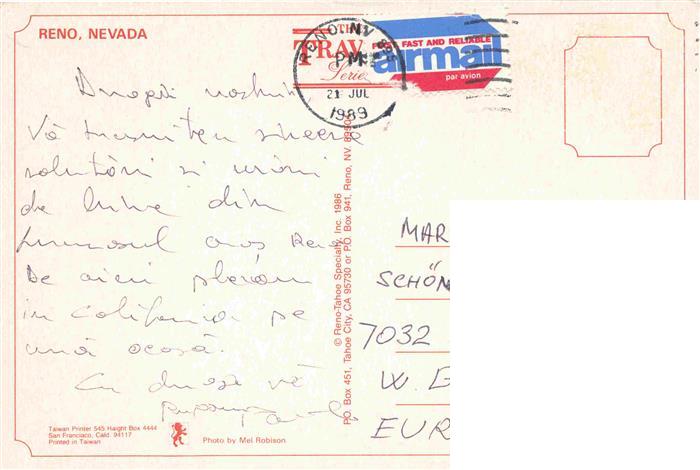 RENO, NEVADA
THE
TRAV
Series
FAST AND RELIABLE
airmail
par avion
RENO, NV 895
PM
21 JUL
1989
Dragii
Vă trimitem sincere
salutări si urări
de bine din
frumosul oraș Reno
De aici plecăm
in California pe
ună acasă.
Cu drag vă
© Reno-Tahoe Specialty, Inc. 1986
P.O. Box 451, Tahoe City, CA 95730 or P.O. Box 941, Reno, NV. 89504
MAR
SCHÖN
7032
W. G
EUR
Taiwan Printer 545 Haight Box 4444
San Francisco, Calid. 94117
Printed in Taiwan
Photo by Mel Robison